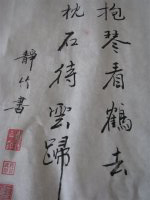 抱琴看鶴去
枕石待雲歸
靜竹書